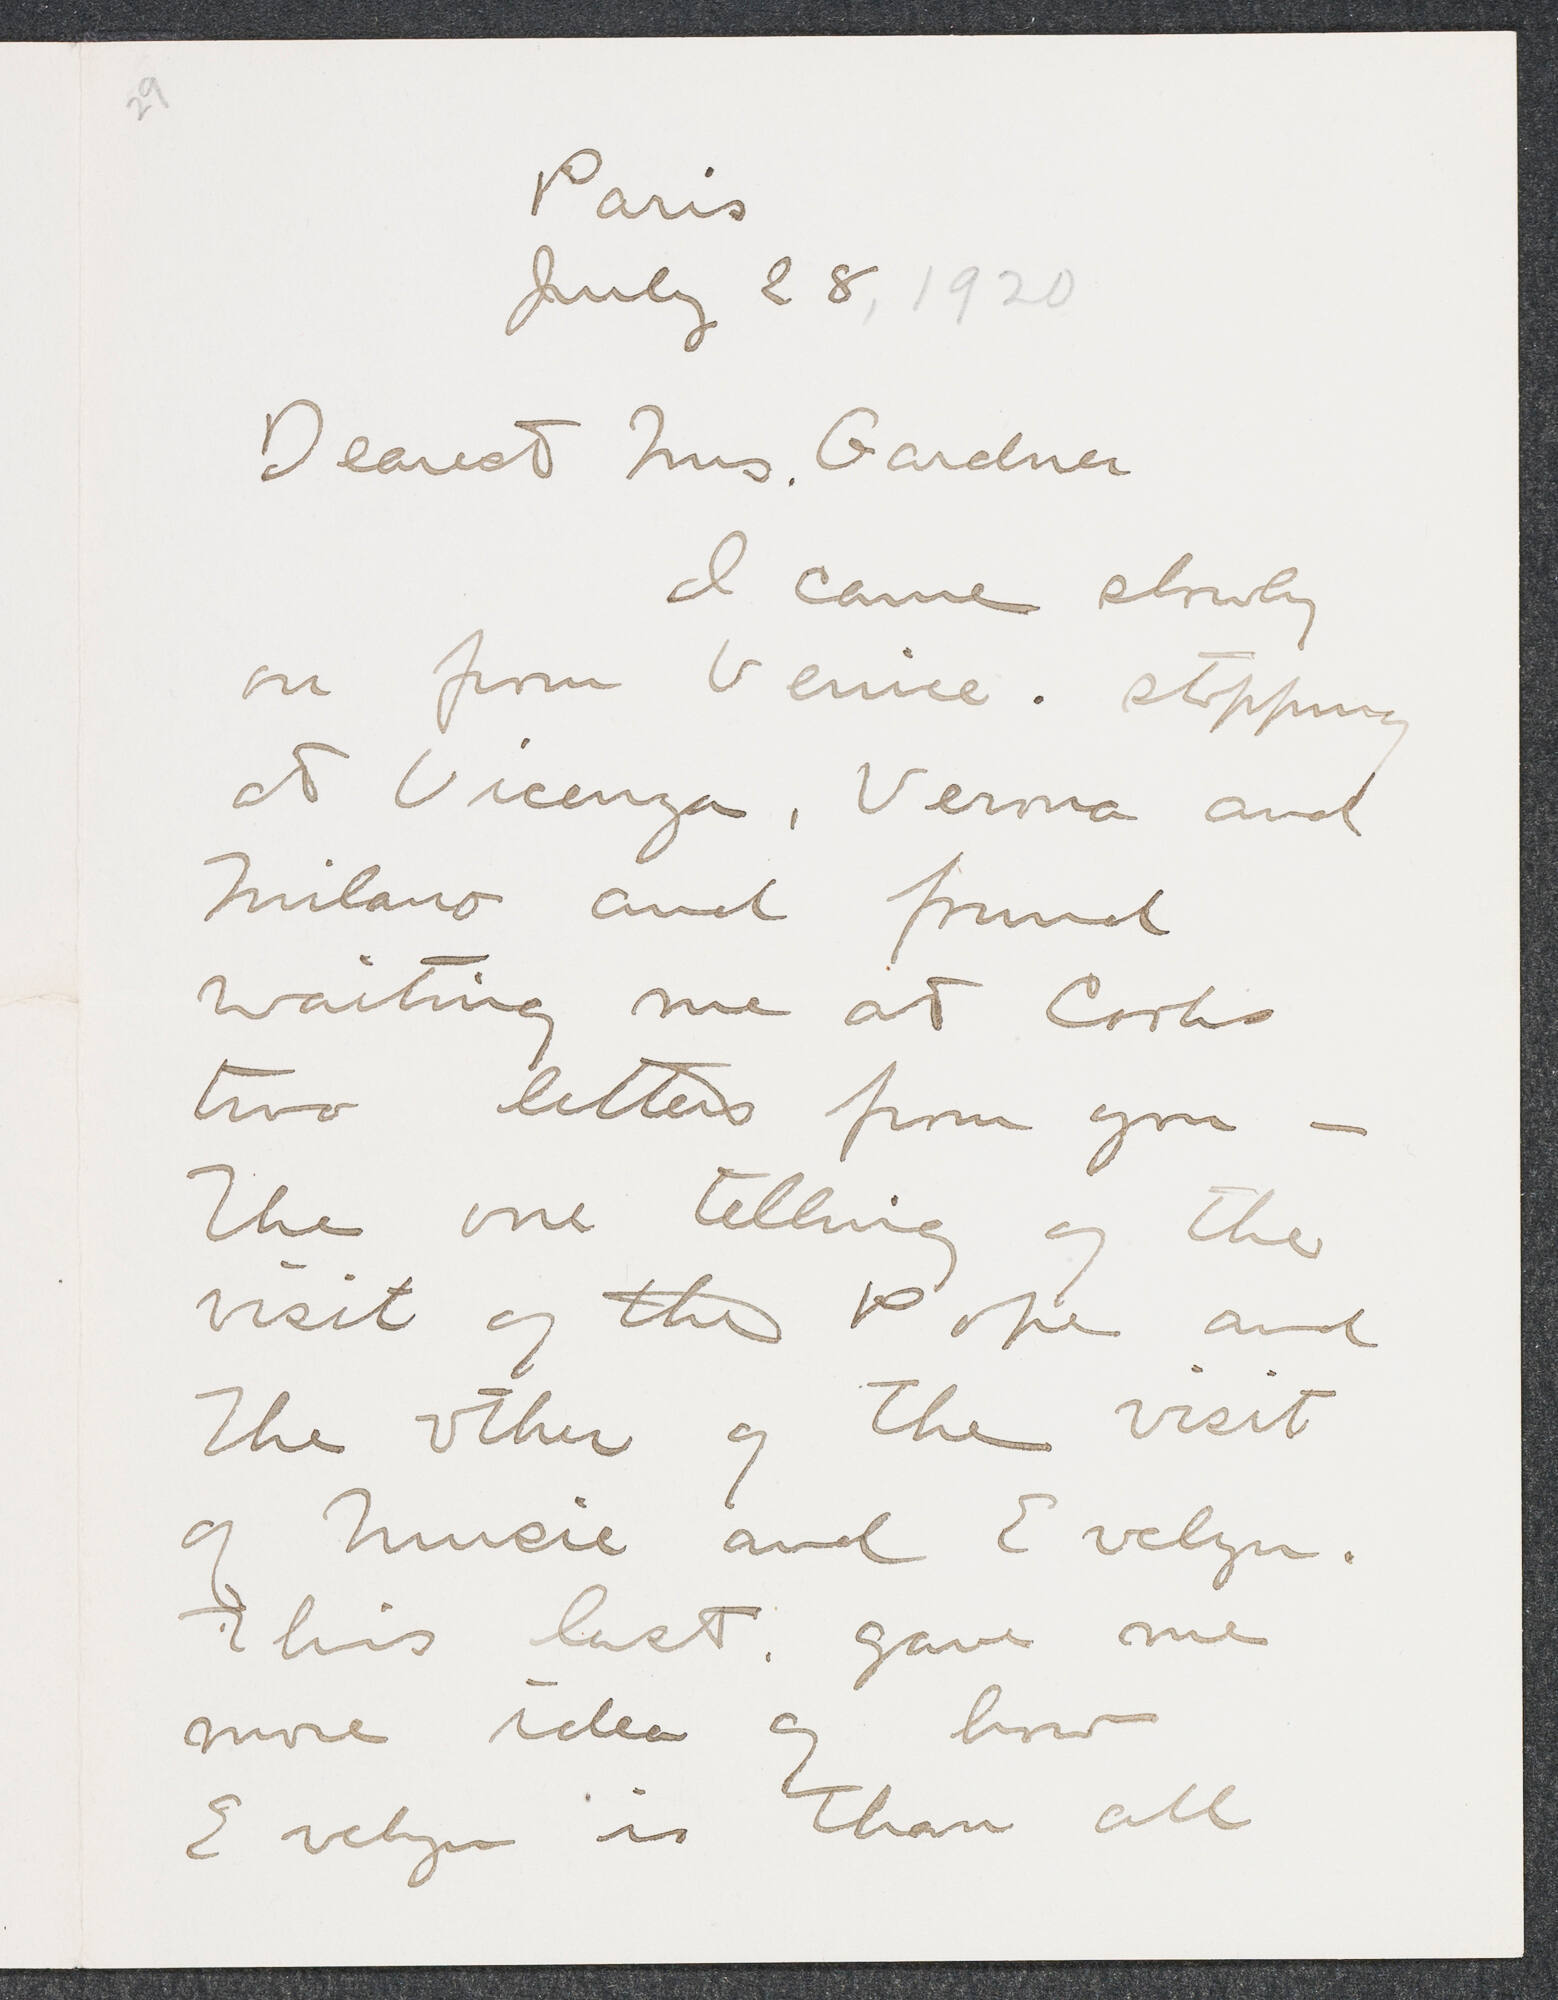 29
Paris
July 28, 1920
Dearest Mrs. Gardner
I came slowly
on from Venice. stopping
at Vicenza, Verona and
Milano and found
waiting me at Cooks
two letters from you —
The one telling of the
visit of the Pope and
The other of the visit
of Music and Evelyn.
This last. gave me
more idea of how
Evelyn is than all